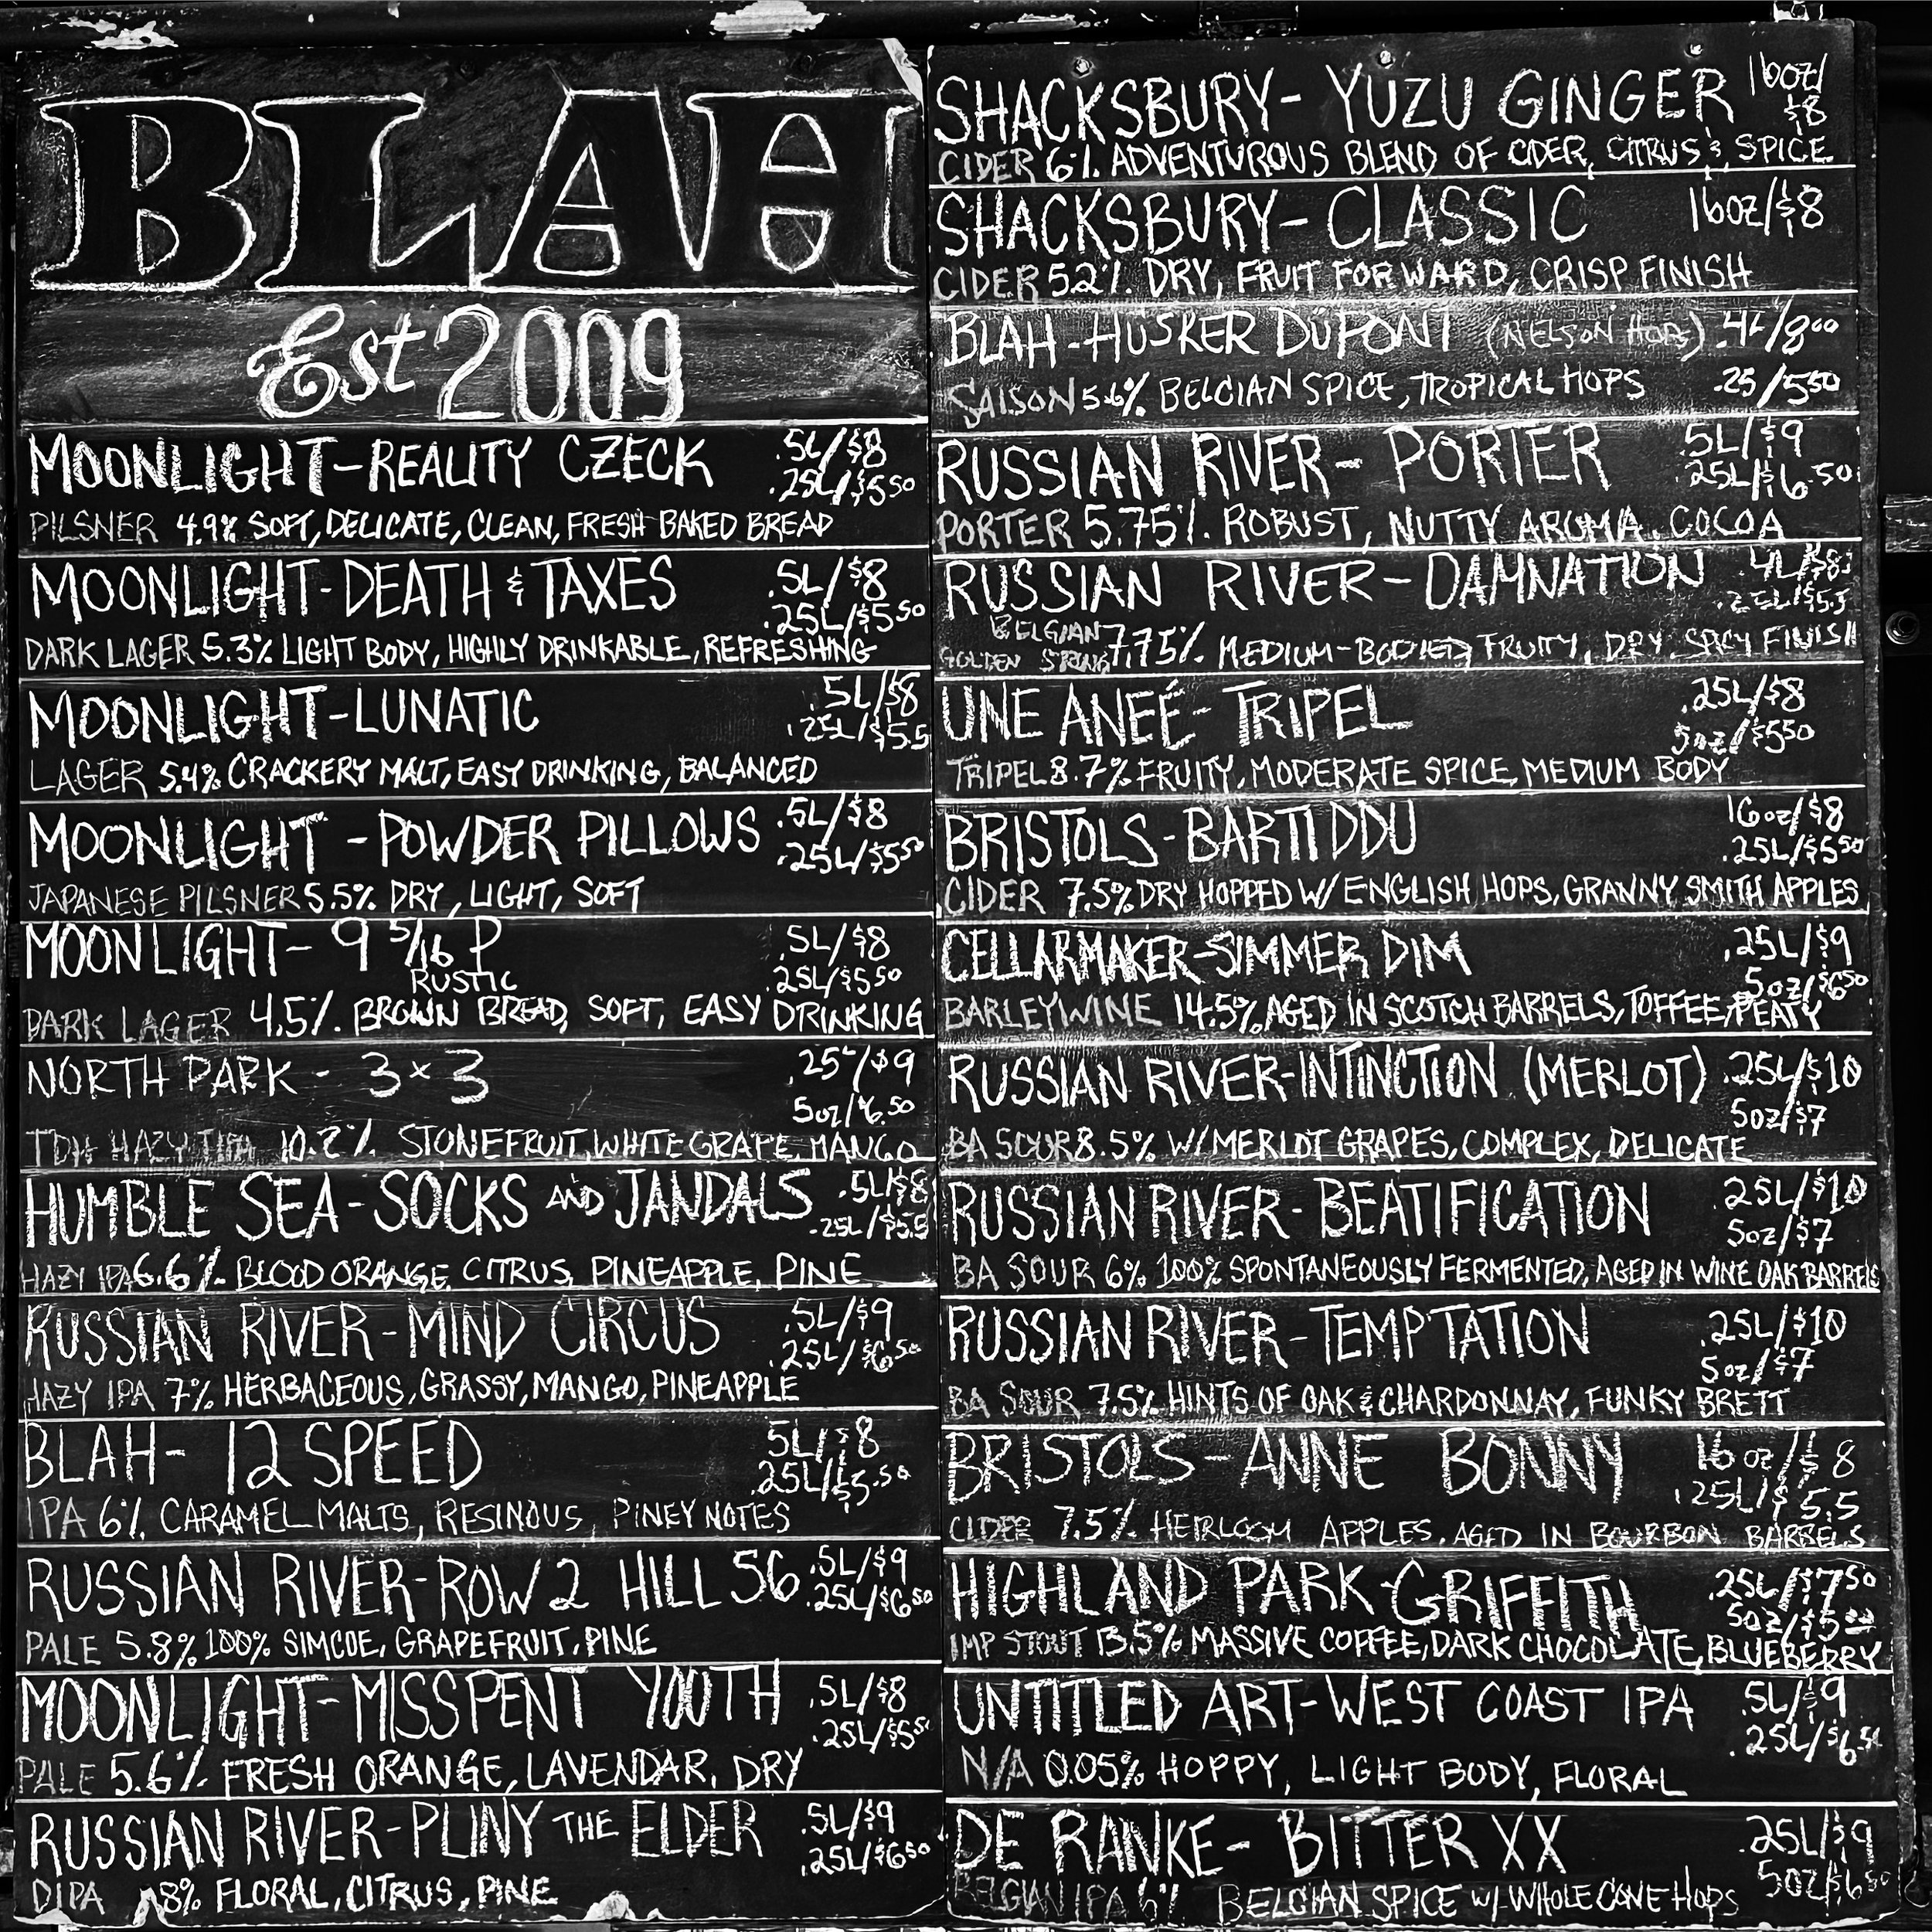 BLAH
Est 2009
MOONLIGHT-REALITY CZECK .5L/$8
.25L/$5.50
PILSNER 4.9% SOFT, DELICATE, CLEAN, FRESH BAKED BREAD
MOONLIGHT-DEATH & TAXES .5L/$8
.25L/$5.50
DARK LAGER 5.3% LIGHT BODY, HIGHLY DRINKABLE, REFRESHING
MOONLIGHT-LUNATIC .5L/$8
.25L/$5.5
LAGER 5.4% CRACKERY MALT, EASY DRINKING, BALANCED
MOONLIGHT-POWDER PILLOWS .5L/$8
.25L/$5.50
JAPANESE PILSNER 5.5% DRY, LIGHT, SOFT
MOONLIGHT- 9 5/16 P .5L/$8
RUSTIC .25L/$5.50
DARK LAGER 4.5% BROWN BREAD, SOFT, EASY DRINKING
NORTH PARK - 3x3 .25L/$9
5oz/6.50
TDH HAZY TIPA 10.2% STONEFRUIT, WHITE GRAPE, MANGO
HUMBLE SEA-SOCKS AND JANDALS .5L/$8
.25L/$5.5
HAZY IPA 6.6% BLOOD ORANGE, CITRUS, PINEAPPLE, PINE
RUSSIAN RIVER-MIND CIRCUS .5L/$9
.25L/$6.50
HAZY IPA 7% HERBACEOUS, GRASSY, MANGO, PINEAPPLE
BLAH- 12 SPEED .5L/$8
.25L/$5.50
IPA 6% CARAMEL MALTS, RESINOUS, PINEY NOTES
RUSSIAN RIVER-ROW 2 HILL 56 .5L/$9
.25L/$6.50
PALE 5.8% 100% SIMCOE, GRAPEFRUIT, PINE
MOONLIGHT-MISSPENT YOUTH .5L/$8
.25L/$5.50
PALE 5.6% FRESH ORANGE, LAVENDAR, DRY
RUSSIAN RIVER-PLINY THE ELDER .5L/$9
.25L/$6.50
DIPA 8% FLORAL, CITRUS, PINE
SHACKSBURY- YUZU GINGER 16oz/
$8
CIDER 6% ADVENTUROUS BLEND OF CIDER, CITRUS & SPICE
SHACKSBURY- CLASSIC 16oz/$8
CIDER 5.2% DRY, FRUIT FORWARD, CRISP FINISH
BLAH-HÜSKER DÜPONT (NELSON HOPS) .4L/8.00
SAISON 5.6% BELGIAN SPICE, TROPICAL HOPS .25/5.50
RUSSIAN RIVER- PORTER .5L/$9
.25L/$6.50
PORTER 5.75% ROBUST, NUTTY AROMA, COCOA
RUSSIAN RIVER-DAMNATION .4L/$8
.25L/$5.5
BELGIAN
GOLDEN STRONG 7.75% MEDIUM-BODIED, FRUITY, DRY, SPICY FINISH
UNE ANEÉ- TRIPEL .25L/$8
5oz/$5.50
TRIPEL 8.7% FRUITY, MODERATE SPICE, MEDIUM BODY
BRISTOLS-BARTI DDU 16oz/$8
.25L/$5.50
CIDER 7.5% DRY HOPPED W/ ENGLISH HOPS, GRANNY SMITH APPLES
CELLARMAKER-SIMMER DIM .25L/$9
5oz/$6.50
BARLEYWINE 14.5% AGED IN SCOTCH BARRELS, TOFFEE, PEATY
RUSSIAN RIVER-INTINCTION (MERLOT) .25L/$10
5oz/$7
BA SOUR 8.5% W/ MERLOT GRAPES, COMPLEX, DELICATE
RUSSIAN RIVER- BEATIFICATION .25L/$10
5oz/$7
BA SOUR 6% 100% SPONTANEOUSLY FERMENTED, AGED IN WINE OAK BARRELS
RUSSIAN RIVER-TEMPTATION .25L/$10
5oz/$7
BA SOUR 7.5% HINTS OF OAK & CHARDONNAY, FUNKY BRETT
BRISTOLS-ANNE BONNY 16oz/$8
.25L/$5.5
CIDER 7.5% HEIRLOOM APPLES, AGED IN BOURBON BARRELS
HIGHLAND PARK-GRIFFITH .25L/$7.50
5oz/$5.00
IMP STOUT 13.5% MASSIVE COFFEE, DARK CHOCOLATE, BLUEBERRY
UNTITLED ART-WEST COAST IPA .5L/$9
.25L/$6.50
N/A 0.05% HOPPY, LIGHT BODY, FLORAL
DE RANKE- BITTER XX .25L/$9
5oz/$6.50
BELGIAN IPA 6% BELGIAN SPICE W/ WHOLE CONE HOPS